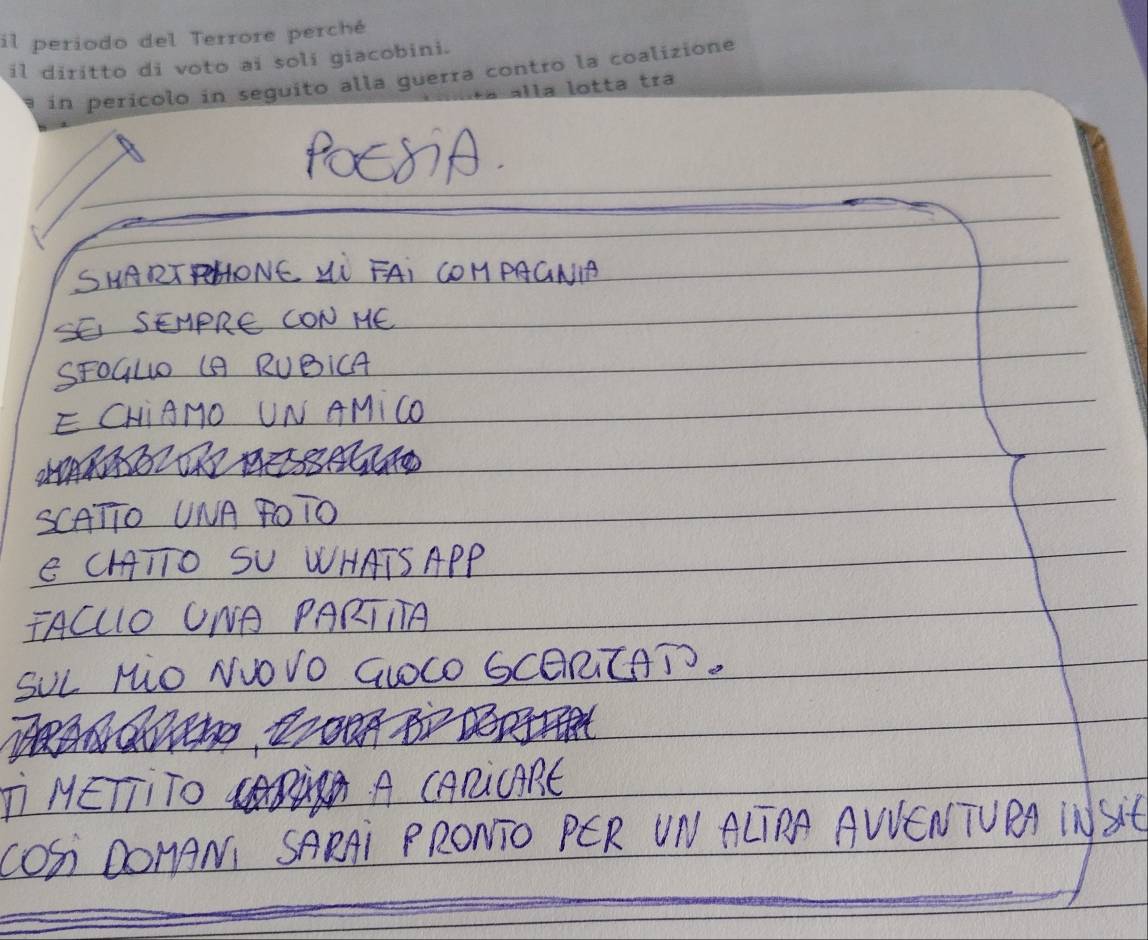 il periodo del Terrore perché
il diritto di voto ai soli giacobini.
in pericolo in seguito alla guerra contro la coalizione
alla lotta tra
POESiA.
SMARTPHONE Mi FAi COMPAGNIA
SEI SEMPRE CON ME
SFOGLIO LA RUBICA
E CHiAMO UN AMiCO
SCATTO UNA FOTO
e CHATTO SU WHATSAPP
FACCIO UNA PARTITA
SUL MiO NUOVO GIOCO SCARICATO.
Ti METTiTO A CARiCARE
COSì DOMANI SARAi PRONTO PER UN ALTRA AVVENTURA